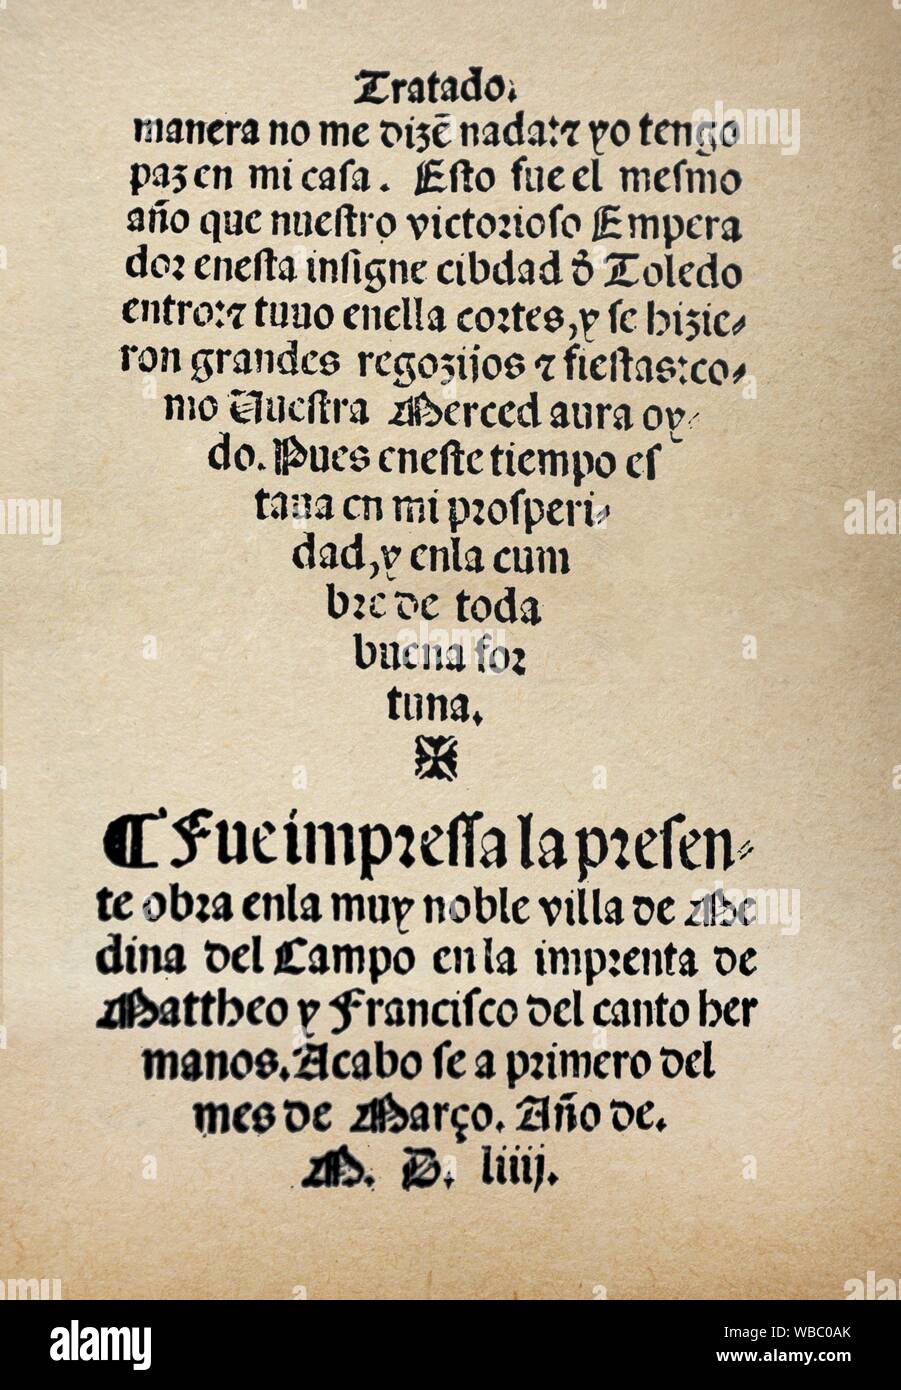 Tratado.
manera no me dizẽ nada: ⁊ yo tengo
paz en mi casa. Esto fue el mesmo
año que nuestro victorioso Empera
dor enesta insigne cibdad đ Toledo
entro: ⁊ tuuo enella cortes, y se hizie-
ron grandes regozijos ⁊ fiestas: co-
mo Vuestra Merced aura oy-
do. Pues eneste tiempo es
taua en mi prosperi-
dad, y enla cum
bre de toda
buena for
tuna.
✠
¶ Fue impressa la presen-
te obra enla muy noble villa de Me
dina del Campo en la imprenta de
Mattheo y Francisco del canto her
manos. Acabo se a primero del
mes de Março. Año de.
M. D. liiij.
alamy
Image ID: WBC0AK
www.alamy.com